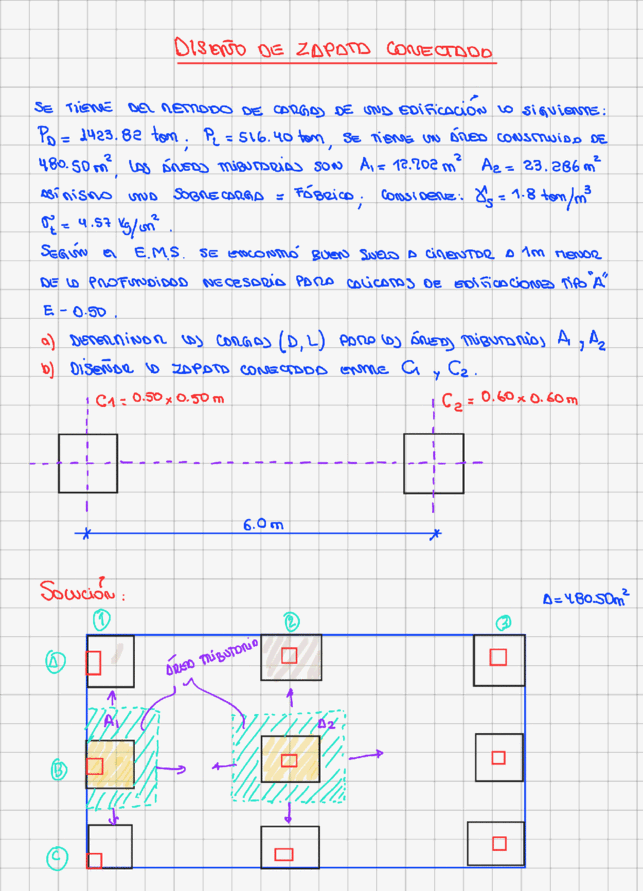 DISEÑO DE ZAPATA CONECTADA
SE TIENE DEL METRADO DE CARGAS DE UNA EDIFICACIÓN LO SIGUIENTE:
P_D = 1423.82 ton; P_L = 516.40 ton, SE TIENE UN ÁREA CONSTRUIDA DE
480.50 m², LAS ÁREAS TRIBUTARIAS SON A₁ = 12.702 m² A₂ = 23.286 m²
ASIMISMO UNA SOBRECARGA = FÁBRICA; CONSIDERE: γ_s = 1.8 ton/m³
σ_t = 4.57 kg/cm².
SEGÚN EL E.M.S. SE ENCONTRÓ BUEN SUELO A CIMENTAR A 1m MENOR
DE LA PROFUNDIDAD NECESARIA PARA CALICATAS DE EDIFICACIONES TIPO "A"
E-0.50.
a) DETERMINAR LAS CARGAS (D, L) PARA LAS ÁREAS TRIBUTARIAS A₁, A₂
b) DISEÑAR LA ZAPATA CONECTADA ENTRE C₁ y C₂.
C1 = 0.50 x 0.50 m
C₂ = 0.60 x 0.60 m
6.0 m
SOLUCIÓN:
A = 480.50m²
1
2
3
A
ÁREA TRIBUTARIA
A₁
A2
B
C